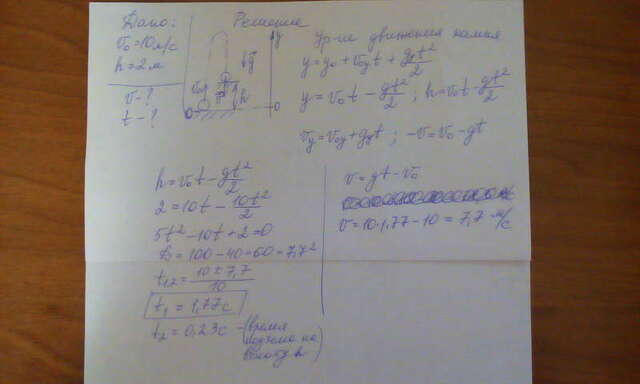 Дано:
v₀=10 м/с
h=2 м
v-?
t-?
Решение
y
v₀
g
h
0
0
Ур-ие движения камня
y=y₀+v₀yt+gyt²/2
y=v₀t-gt²/2; h=v₀t-gt²/2
vy=v₀y+gyt; -v=v₀-gt
h=v₀t-gt²/2
2=10t-10t²/2
5t²-10t+2=0
D=100-40=60=7,7²
t₁,₂=10±7,7/10
t₁=1,77с
t₂=0,23с -(время
подъема на
высоту h)
v=gt-v₀
v=10·1,77-10=7,7 м/с